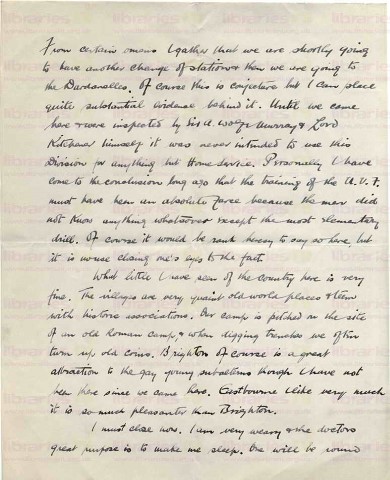 From certain omens I gather that we are shortly going
to have another change of station & then we are going to
the Dardanelles. Of course this is conjecture but I can place
quite substantial evidence behind it. Until we came
here & were inspected by Sir A. Wolfe Murray & Lord
Kitchener himself it was never intended to use this
Division for anything but Home Service. Personally I have
come to the conclusion long ago that the training of the U.V.F.
must have been an absolute farce because the men did
not know anything whatsoever except the most elementary
drill. Of course it would be rank heresy to say so here, but
it is no use closing one's eyes to the fact.
What little I have seen of the country here is very
fine. The villages are very quaint old world places & teem
with historic associations. Our camp is pitched on the site
of an old Roman camp, & when digging trenches we often
turn up old coins. Brighton of course is a great
attraction to the gay young subalterns though I have not
been there since we came here. Eastbourne I like very much
it is so much pleasanter than Brighton.
I must close now. I am very weary & the doctors
great purpose is to make me sleep. He will be round